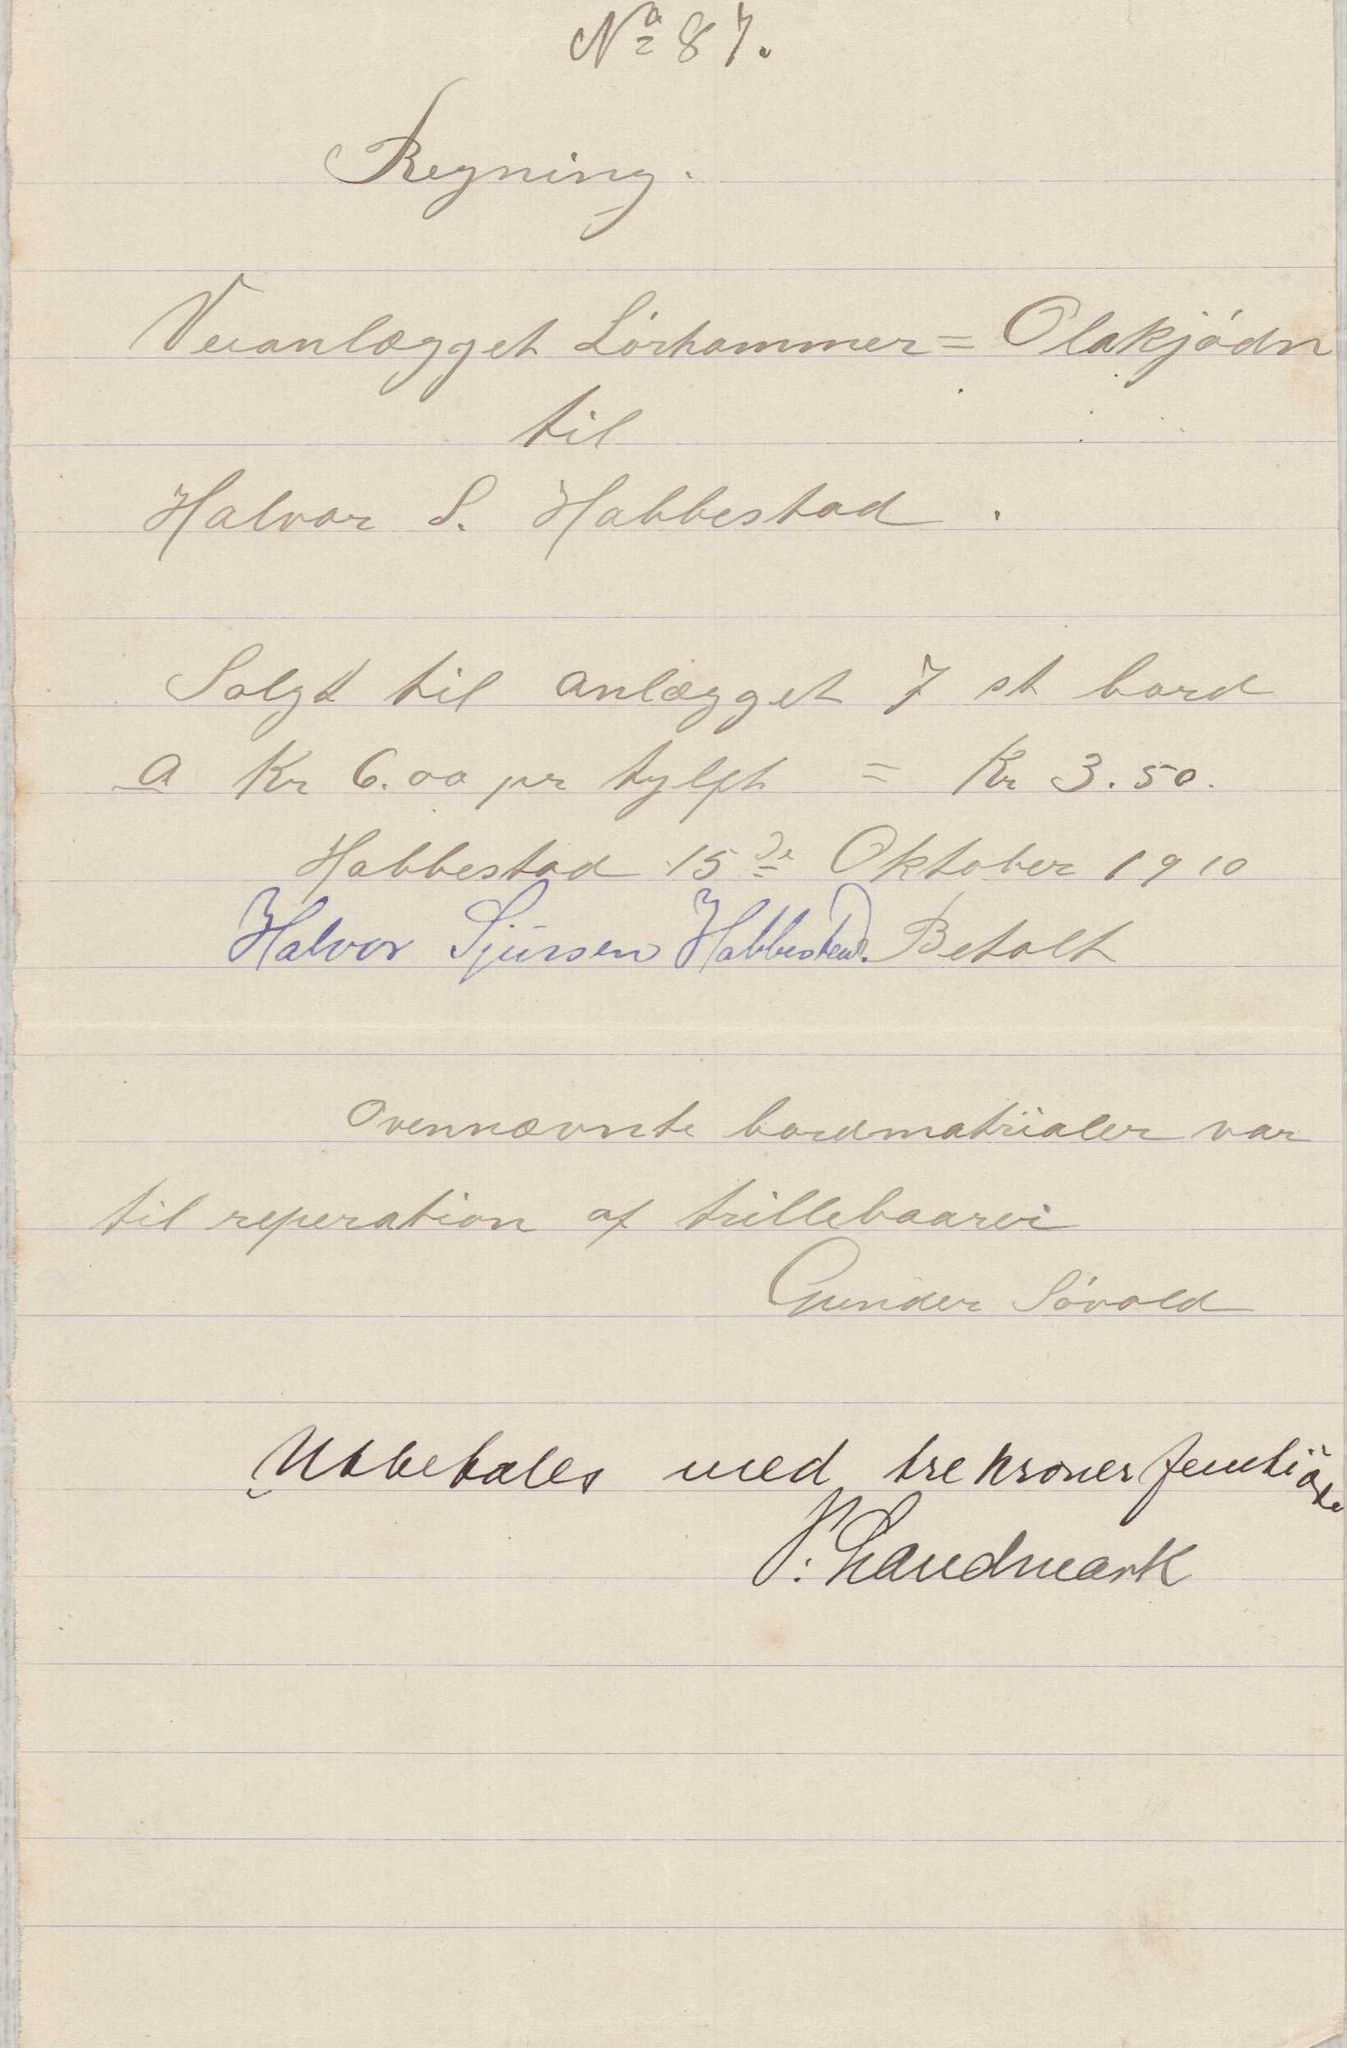 No 87.
Regning.
Veianlægget Lórhammer = Olakjódn
til
Halvor S. Habbestad.
Solgt til anlægget 7 st bord
a Kr 6.00 pr tylft = Kr 3.50.
Habbestad 15de Oktober 1910
Halvor Sjursen Habbestad. Betalt
Ovennævnte bordmatrialer var
til reperation af trillebaarer
Gunder Sóvold
Utbetales med tre kroner femti øre
N: Landmark